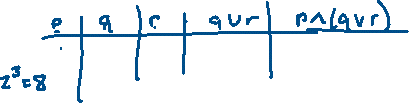 p q r q∨r p∧(q∨r)
2³=8